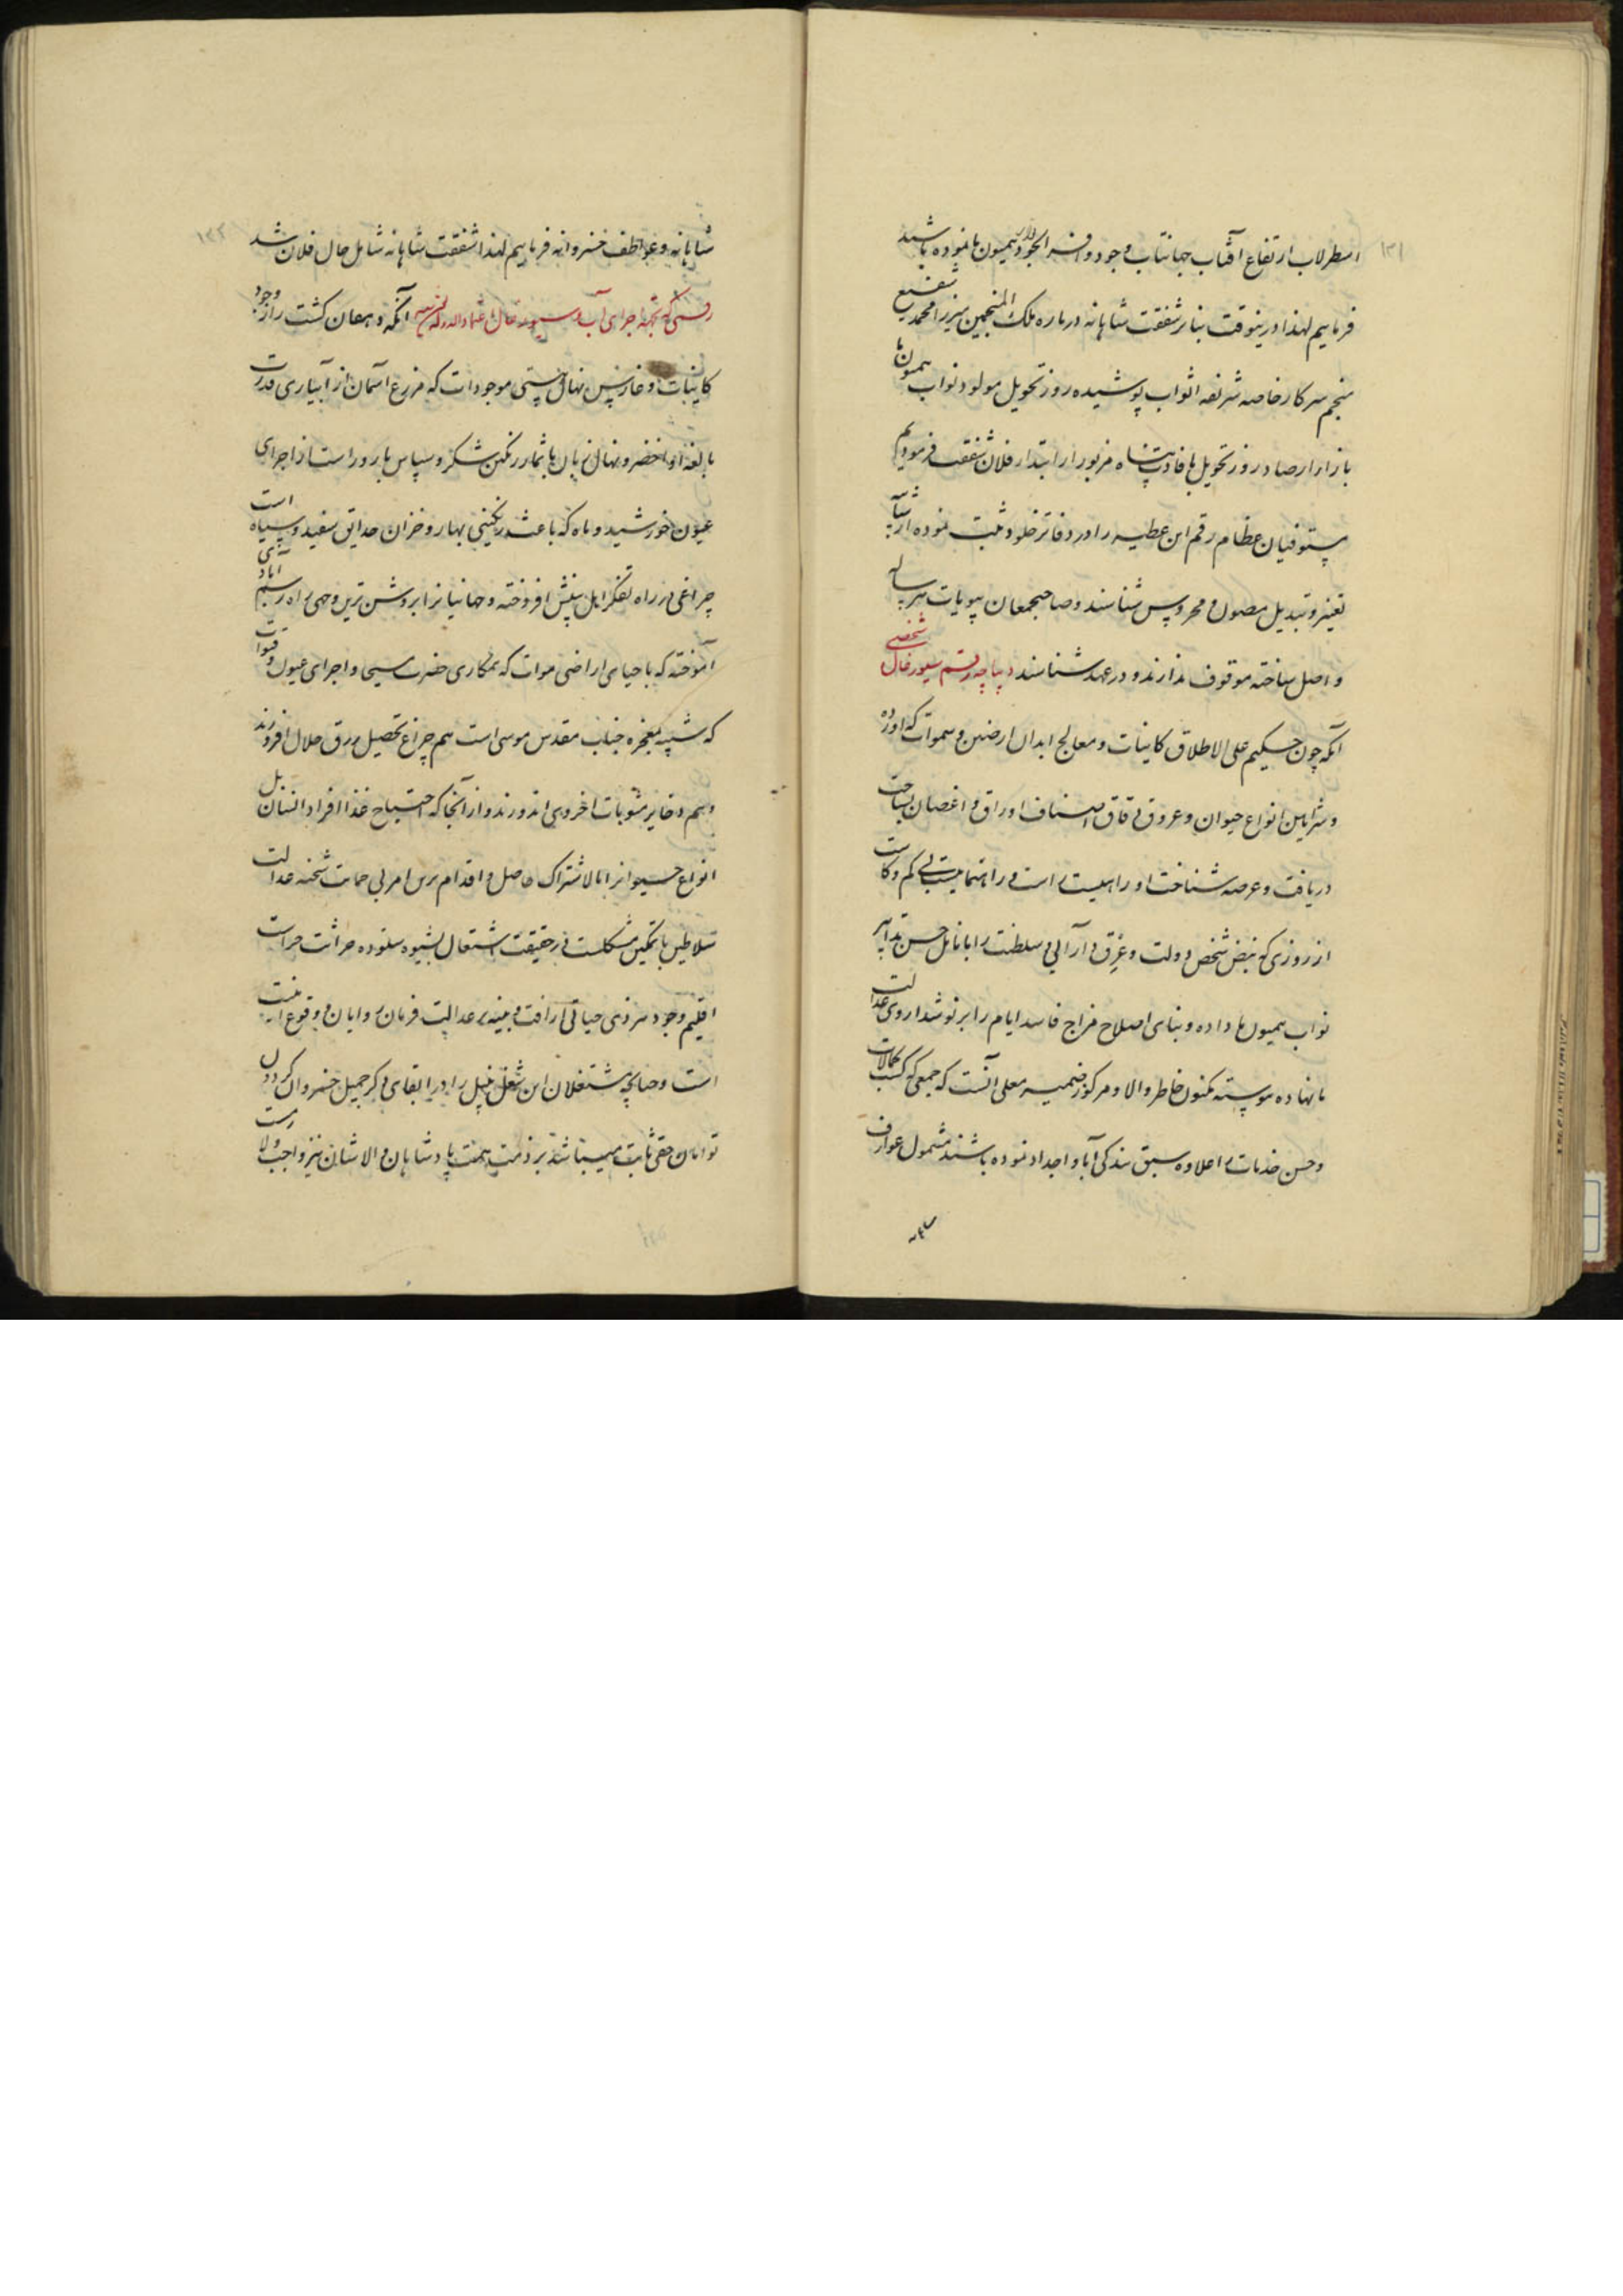 ۱۳۱
اسطرلاب ارتفاع آفتاب جهانتاب وجود وافر الجود همیون ما نموده باشند
فرماییم لهذا درینوقت بنابر شفقت شاهانه درباره ملک المنجمین میرزا محمد شفیع
منجم سرکار خاصه شریفه اثواب پوشیده روز تحویل مولود نواب همیون ما
بازار ارصاد روز تحویل با فادت پناه مزبور را ابتداء فلان شفقت فرمودیم
مستوفیان عظام رقم این عطیه را در دفاتر خلود ثبت نموده از شائبه
تغییر و تبدیل مصون و محروس شناسند و صاحبجمعان بیوتات هرساله
واصل ساخته موقوف ندارند و در عهده شناسند دیباچه رقم سیورغال شخصی
آنکه چون حکیم علی الاطلاق کاینات و معالج ابدان ارضین و سموات که
و شرایین انواع حیوان و عروق دقاق اصناف اوراق و اغصان
دریافت و عرصه شناخت او را
از روزی که نبض شخص دولت و سلطنت را بانامل حسن تدابیر
نواب همیون ما داده و بنای اصلاح مزاج فاسد ایام را بر نوشداروی عدالت
ما نهاده پیوسته مکنون خاطر والا و مرکوز ضمیر معلی آنست که جمعی که کسب کمالات
و حسن خدمات را علاوه سبق بندگی آبا و اجداد نموده باشند مشمول عوارف
۱۳۲
شاهانه و عواطف خسروانه فرماییم لهذا شفقت شاهانه شامل حال فلان شد
رقمی که بجهة اجرای آب و سیورغال اعتماد الدوله آنکه دهقان کشت زار وجود
کاینات و غارس نهال هستی موجودات که مزرع آسمان از آبیاری قدرت
بالغه او اخضر و نهال زبان ها بثمار رنگین شکر و سپاس بارور است از اجرای
عیون خورشید و ماه که باعث رنگینی بهار و خزان حدایق سفید و سیاه است
چراغی در راه تفکر اهل بینش افروخته و جهانیانرا بروشن ترین وجهی راه رسم آبادی
آموخته که باحیای اراضی موات که همکاری حضرت مسیح و اجرای عیون و قنوات
که شبیه معجزه جناب مقدس موسی است هم چراغ تحصیل رزق حلال افروزند
و هم ذخایر مثوبات اخروی اندوزند و از آنجا که احتیاج غذا افراد انسان بل
انواع حیوانرا بالاشتراک حاصل و اقدام برین امر بی حمایت شحنه عدالت
سلاطین با تمکین مشکلست در حقیقت اشتغال بشیوه ستوده حراثت حراست
اقلیم وجود هر ذی حیاتی از رافت و عدالت فرمان روایان
است و چنانچه مشتغلان این شغل نبیل را در ابقای ذکر جمیل خسروان گردون
توامان حقی ثابت میباشد بر ذمت همت پادشاهان والاشان نیز واجب و لازمست